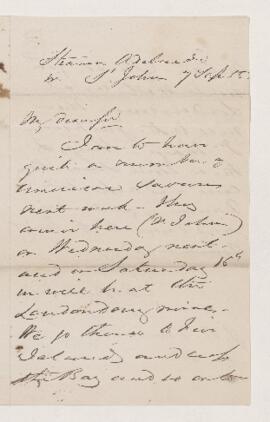 Steamer
St John 7 Sep
My dear Sir
I am to have
quite a number of
American savans
next week. They
arrive here (St John)
on Wednesday next
and on Saturday 16th
we will be at the
Londonderry mines.
We go thence to Five
Islands and cross
the Bay and so on to